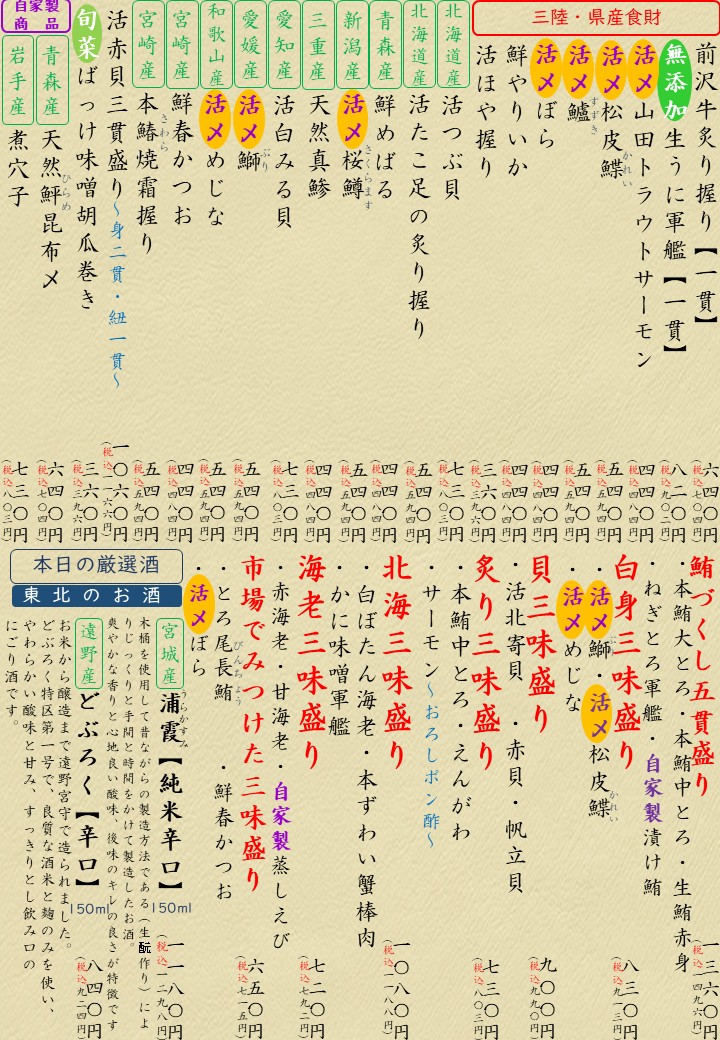 三陸・県産食財
前沢牛炙り握り【一貫】 六四〇円 (税込七〇四円)
無添加 生うに軍艦【一貫】 八二〇円 (税込九〇二円)
活〆 山田トラウトサーモン 四四〇円 (税込四八四円)
活〆 松皮鰈 かれい 五四〇円 (税込五九四円)
活〆 鱸 すずき 五四〇円 (税込五九四円)
活〆 ぼら 四四〇円 (税込四八四円)
鮮やりいか 四四〇円 (税込四八四円)
活ほや握り 三六〇円 (税込三九六円)
北海道産 活つぶ貝 七三〇円 (税込八〇三円)
北海道産 活たこ足の炙り握り 五四〇円 (税込五九四円)
青森産 鮮めばる 四四〇円 (税込四八四円)
新潟産 活〆 桜鱒 さくらます 五四〇円 (税込五九四円)
三重産 天然真鯵 四四〇円 (税込四八四円)
愛知産 活白みる貝 七三〇円 (税込八〇三円)
愛媛産 活〆 鰤 ぶり 五四〇円 (税込五九四円)
和歌山産 活〆 めじな 五四〇円 (税込五九四円)
宮崎産 鮮春かつお 四四〇円 (税込四八四円)
宮崎産 本鰆焼霜握り さわら 五四〇円 (税込五九四円)
活赤貝三貫盛り～身二貫・紐一貫～ 一〇六〇円 (税込一一六六円)
旬菜 ばっけ味噌胡瓜巻き 三六〇円 (税込三九六円)
自家製商品
青森産 天然鮃昆布〆 ひらめ 六四〇円 (税込七〇四円)
岩手産 煮穴子 七三〇円 (税込八〇三円)
鮪づくし五貫盛り 一三六〇円 (税込一四九六円)
・本鮪大とろ・本鮪中とろ・生鮪赤身
・ねぎとろ軍艦・自家製漬け鮪
白身三味盛り 八三〇円 (税込九一三円)
・活〆 鰤 ぶり・活〆 松皮鰈 かれい
・活〆 めじな
貝三味盛り 九〇〇円 (税込九九〇円)
・活北寄貝 ・赤貝・帆立貝
炙り三味盛り 七三〇円 (税込八〇三円)
・本鮪中とろ・えんがわ
・サーモン～おろしポン酢～
北海三味盛り 一〇八〇円 (税込一一八八円)
・白ぼたん海老・本ずわい蟹棒肉
・かに味噌軍艦
海老三味盛り 七二〇円 (税込七九二円)
・赤海老・甘海老・自家製蒸しえび
市場でみつけた三味盛り 六五〇円 (税込七一五円)
・とろ尾長鮪 びんちょう ・鮮春かつお
・活〆 ぼら
本日の厳選酒
東北のお酒
宮城産 浦霞 うらかすみ【純米辛口】 150ml 一一八〇円 (税込一二九八円)
木桶を使用して昔ながらの製造方法である(生酛作り)によ
りじっくりと手間と時間をかけて製造したお酒。
爽やかな香りと心地良い酸味、後味のキレの良さが特徴です
遠野産 どぶろく【辛口】 150ml 八四〇円 (税込九二四円)
お米から醸造まで遠野宮守で造られました。
どぶろく特区第一号で、良質な酒米と麹のみを使い、
やわらかい酸味と甘み、すっきりとし飲み口の
にごり酒です。